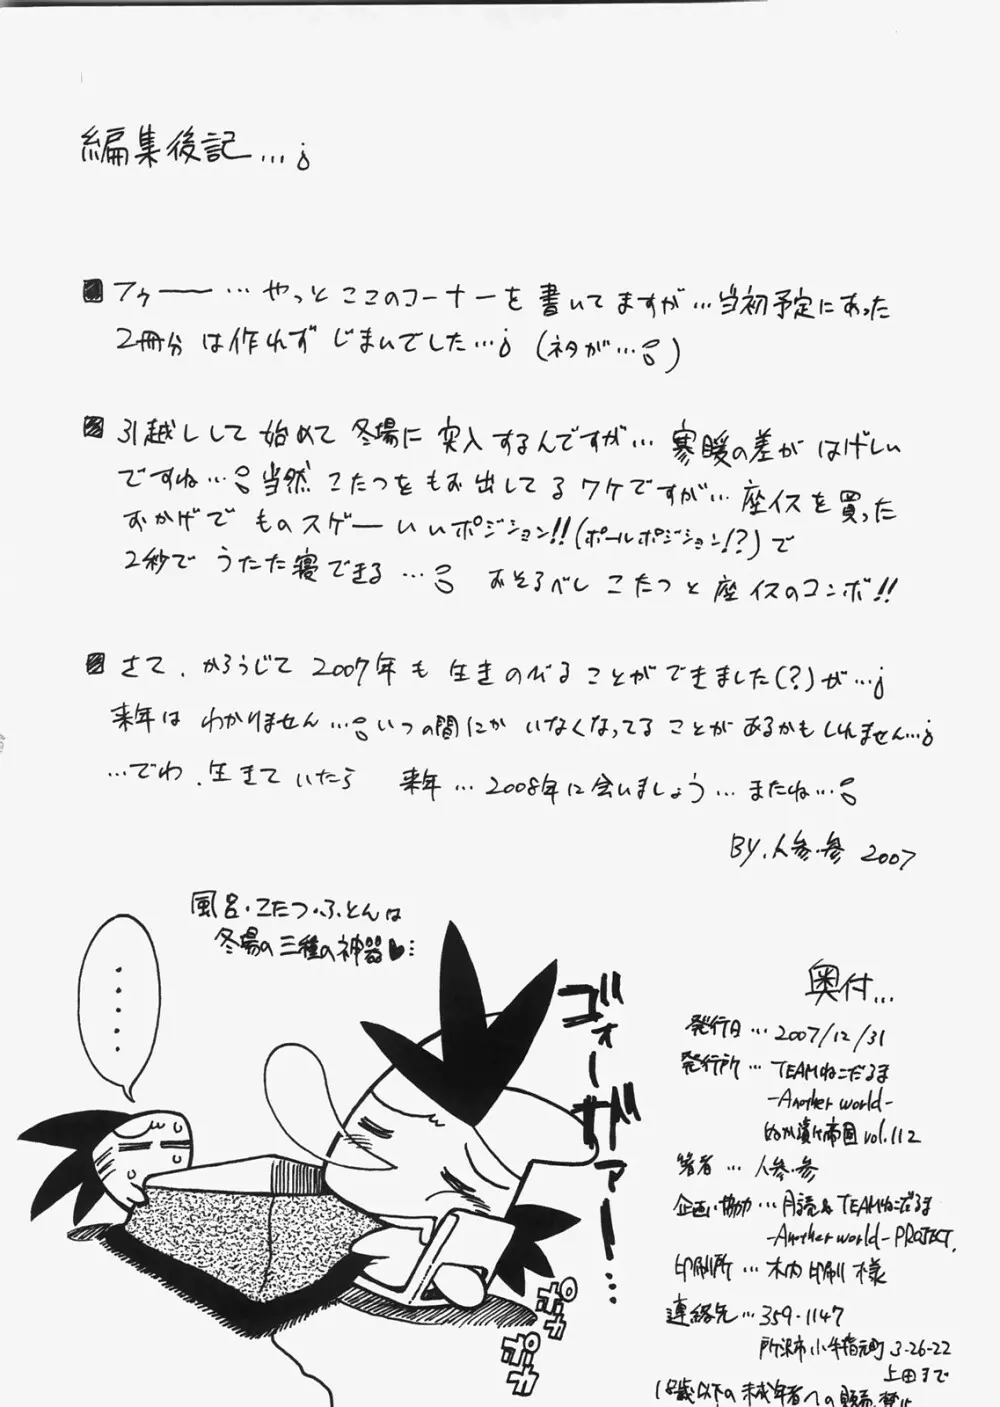 編集後記…¡
■ フゥーー…やっとここのコーナーを書いてますが…当初予定にあった
2冊分は作れずじまいでした…¡(ネタが…¡)
■ 引越しして始めて冬場に突入するんですが…寒暖の差がはげしい
ですね…¡当然こたつをもお出してるワケですが…座イスを買った
おかげでものスゲーいいポジション!!(ポールポジション!?)で
2秒でうたた寝できる…¡ おそるべしこたつと座イスのコンボ!!
■ さて、かろうじて2007年も生きのびることができました(?)が…¡
来年はわかりません…¡いつの間にかいなくなってることがあるかもしれません…¡
…でわ、生きていたら 来年…2008年に会いましょう…またね…¡
BY.人参・参 2007
風呂・こたつ・ふとんは
冬場の三種の神器♥…
・・・・・
ゴォーーガァーー…
ポカ
ポカ
奥付…
発行日…2007/12/31
発行所…TEAMねこだるま
-Another world-
ぬか漬け帝国 vol.112
著者…人参・参
企画・協力…月読&TEAMねこだるま
-Another world-PROJECT.
印刷所…木内印刷様
連絡先…359-1147
所沢市小手指元町3-26-22
上田まで
18歳以下の未成年者への販売禁止